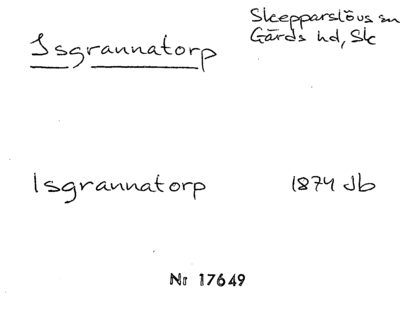 Isgrannatorp
Skepparslövs sn
Gärds hd, Sk
Isgrannatorp 1874 Jb
Nr 17649